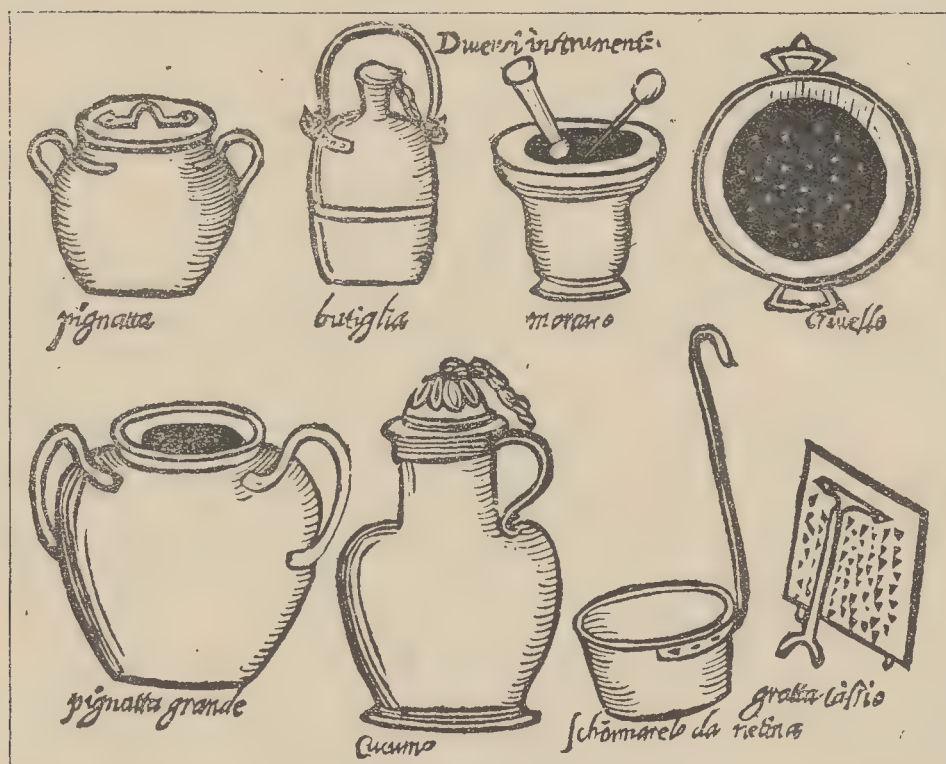 Diuersi instrumenti.
pignatta
butiglia
mortaro
Criuello
pignatta grande
Cucumo
gratta cassio